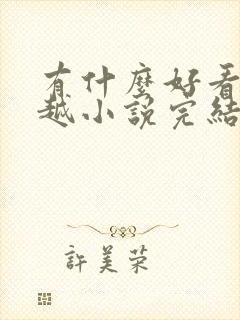 有什麼好看
越小說完結
許美榮